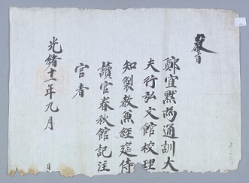 敎旨
鄭宜默爲通訓大
夫行弘文館校理
知製敎兼經筵侍
讀官春秋館記注
官者
光緒十一年九月 日